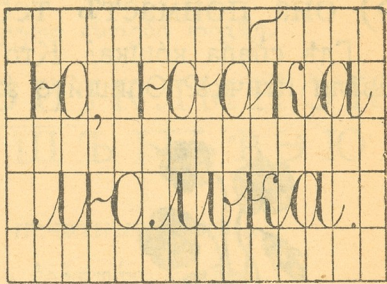 ю, юбка
люлька.